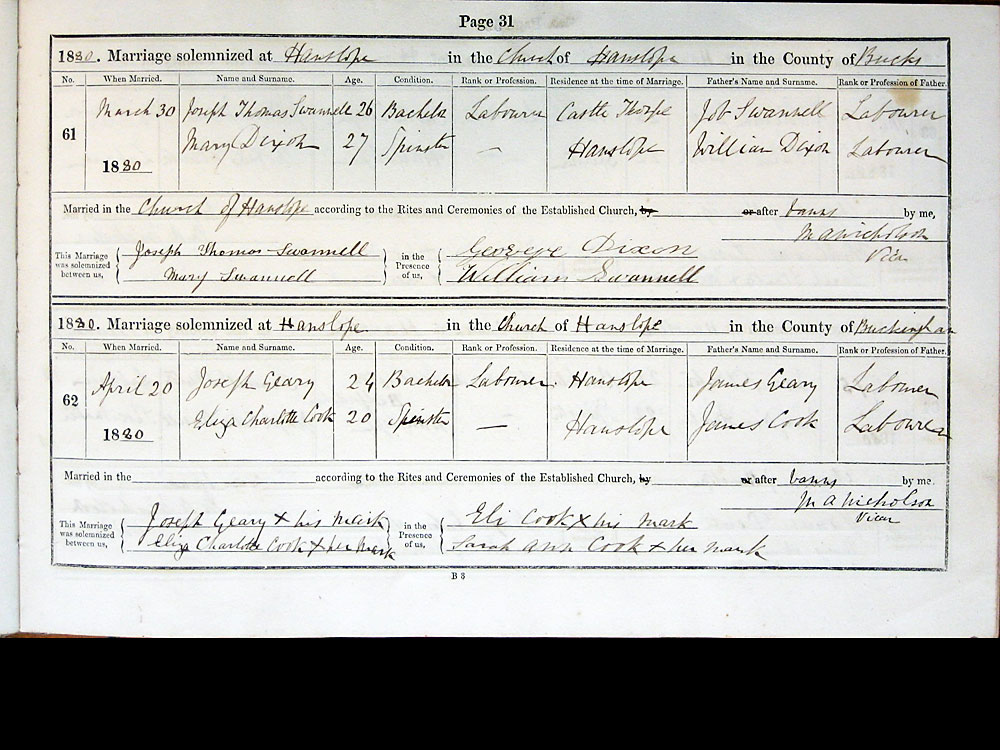 Page 31
1880. Marriage solemnized at Hanslope in the Church of Hanslope in the County of Bucks
No. When Married. Name and Surname. Age. Condition. Rank or Profession. Residence at the time of Marriage. Father's Name and Surname. Rank or Profession of Father.
March 30 Joseph Thomas Swannell 26 Bachelor Labourer Castle Thorpe Job Swannell Labourer
61
Mary Dixon 27 Spinster — Hanslope William Dixon Labourer
1880
Married in the Church of Hanslope according to the Rites and Ceremonies of the Established Church, by or after banns by me,
M A Nicholson
Vicar
This Marriage was solemnized between us,
Joseph Thomas Swannell
Mary Swannell
in the Presence of us,
George Dixon
William Swannell
1880. Marriage solemnized at Hanslope in the Church of Hanslope in the County of Buckingham
No. When Married. Name and Surname. Age. Condition. Rank or Profession. Residence at the time of Marriage. Father's Name and Surname. Rank or Profession of Father.
April 20 Joseph Geary 24 Bachelor Labourer. Hanslope James Geary Labourer
62
Eliza Charlotte Cook 20 Spinster — Hanslope James Cook Labourer
1880
Married in the according to the Rites and Ceremonies of the Established Church, by or after banns by me.
M A Nicholson
Vicar
This Marriage was solemnized between us,
Joseph Geary x his mark
Eliza Charlotte Cook x her mark
in the Presence of us,
Eli Cook x his mark
Sarah Ann Cook x her mark
B 3